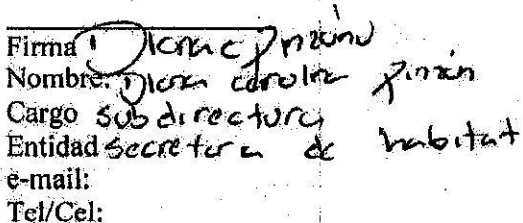 Firma Diana c Pinzón
Nombre: Diana carolina Pinzón
Cargo subdirectora
Entidad secretaria de habitat
e-mail:
Tel/Cel: